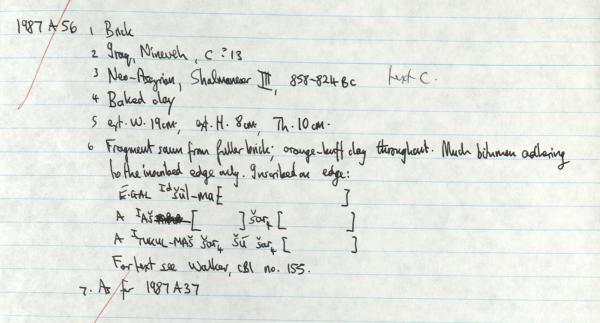 1987 A 56 1 Brick
2 Iraq, Nineveh, C ? 13
3 Neo-Assyrian, Shalmaneser III, 858-824 BC text C.
4 Baked clay
5 ext. W. 19cm, ext. H. 8cm, Th. 10cm.
6 Fragment sawn from fuller brick; orange-buff clay throughout. Much bitumen adhering
to the inscribed edge only. Inscribed on edge:
É.GAL I d šùl-ma[ ]
A I AŠ [ ] šar₄ [ ]
A I TUKUL-MAŠ šar₄ ŠÚ šar₄ [ ]
For text see Walker, CBI no. 155.
7. As for 1987 A 37